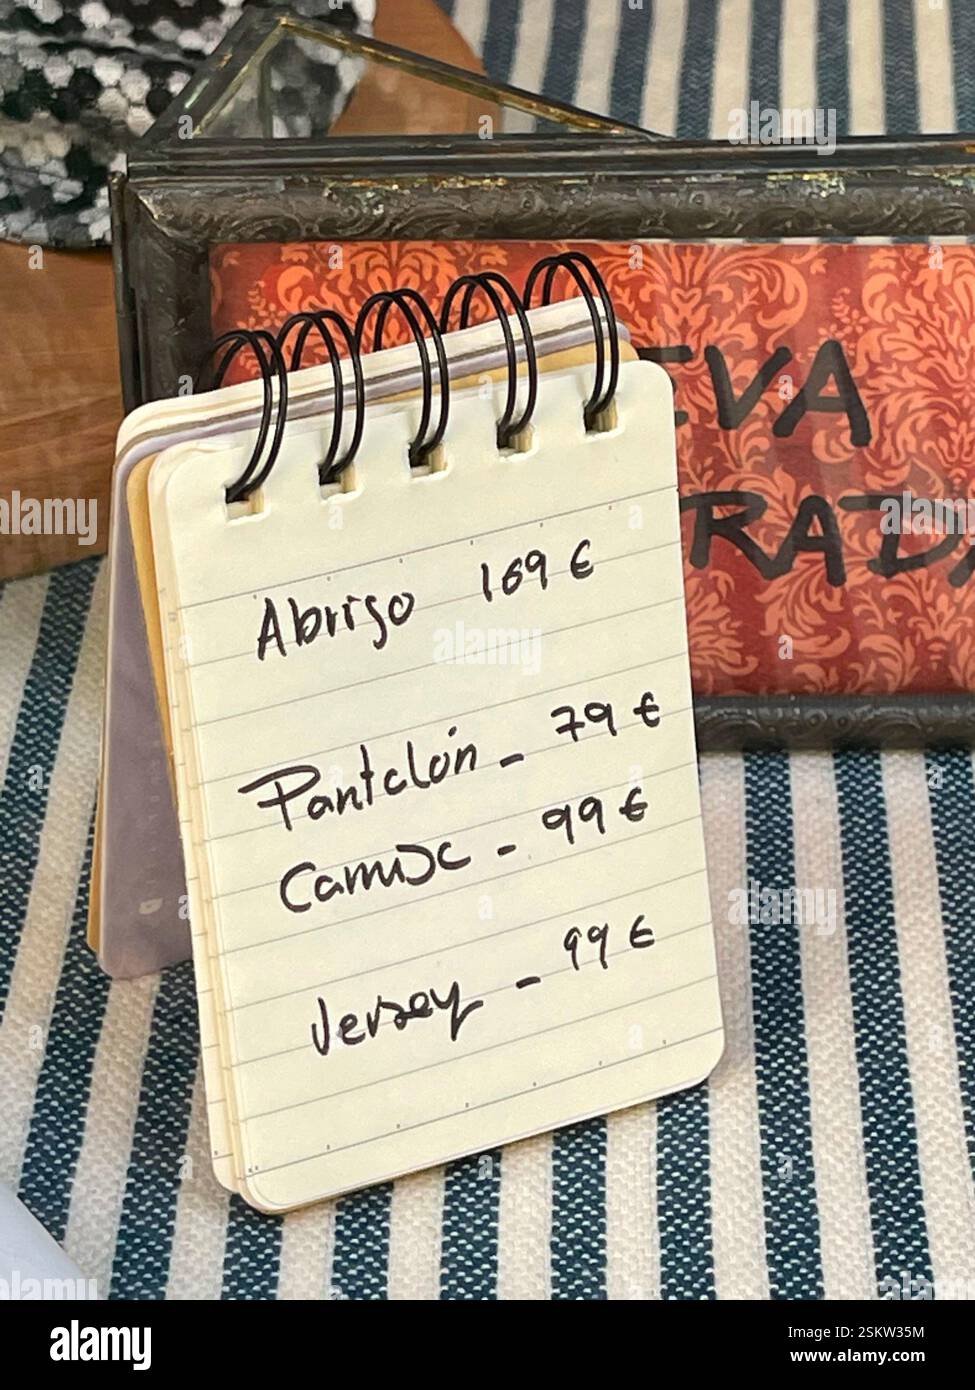 Abrigo 169 €
Pantalón - 79 €
Camisa - 99 €
Jersey - 99 €
EVA
RADA
alamy
Image ID: 2SKW35M
www.alamy.com